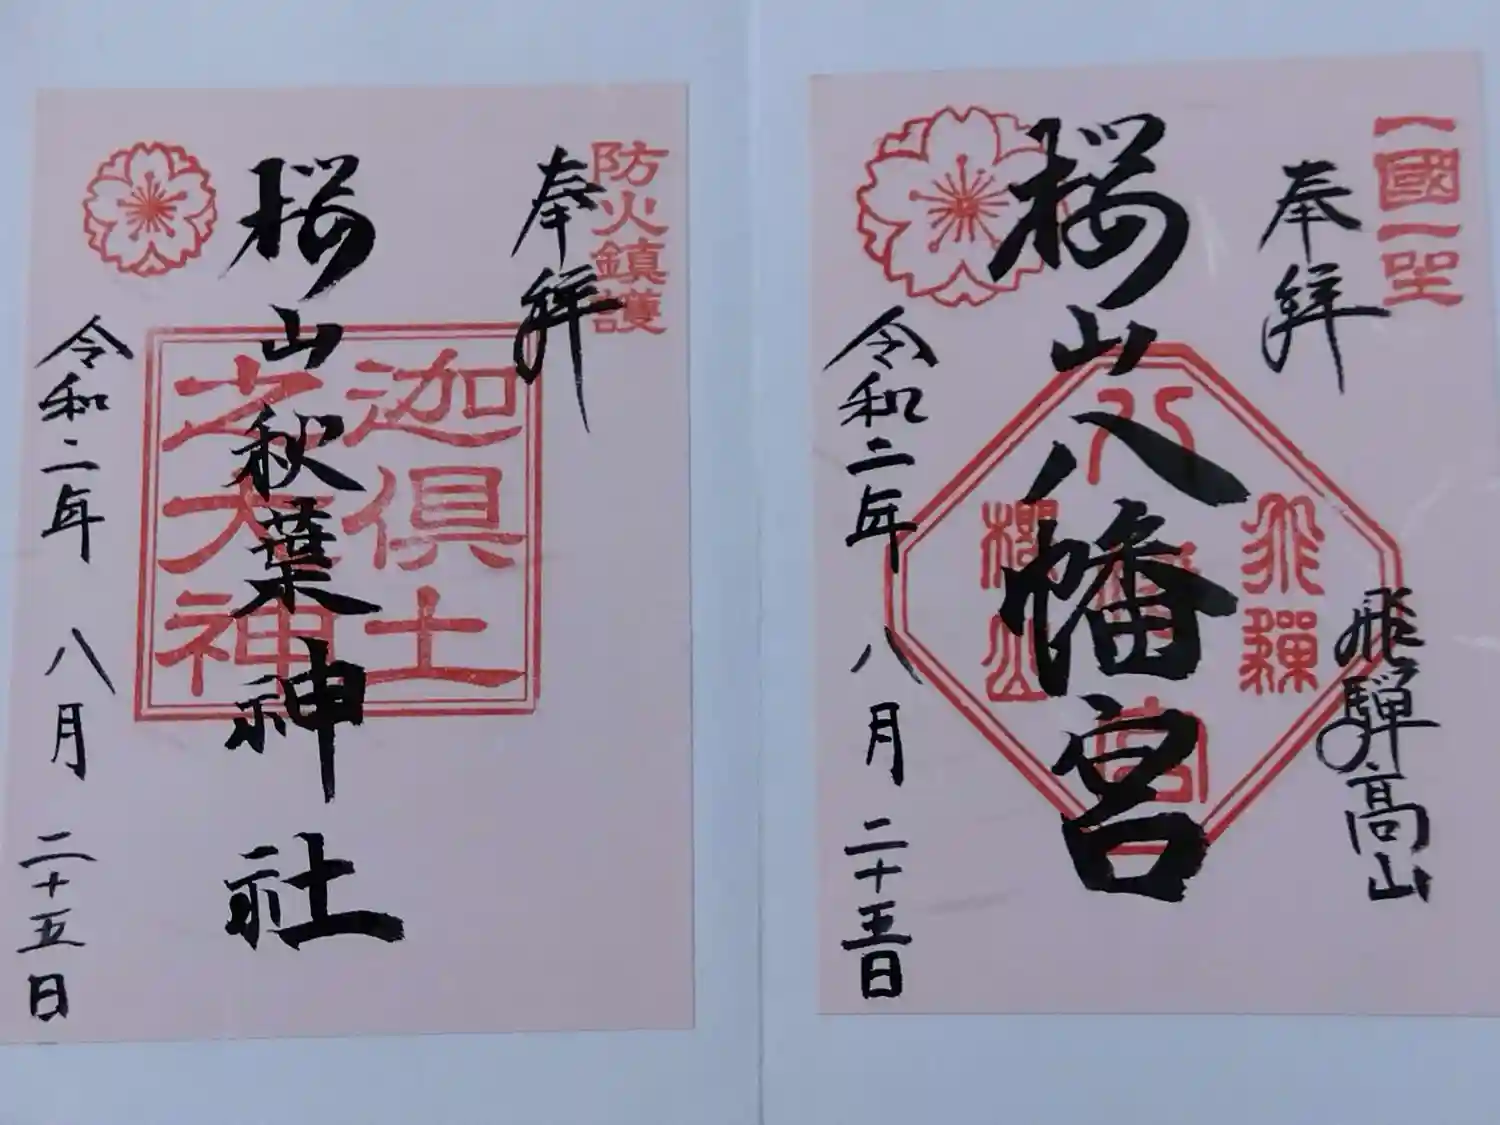 一國一社
奉拜
飛騨高山
桜山八幡宮
八幡宮
飛騨
櫻山
令和二年 八月 二十五日
防火鎮護
奉拜
桜山秋葉神社
迦倶土
之大神
令和二年 八月 二十五日